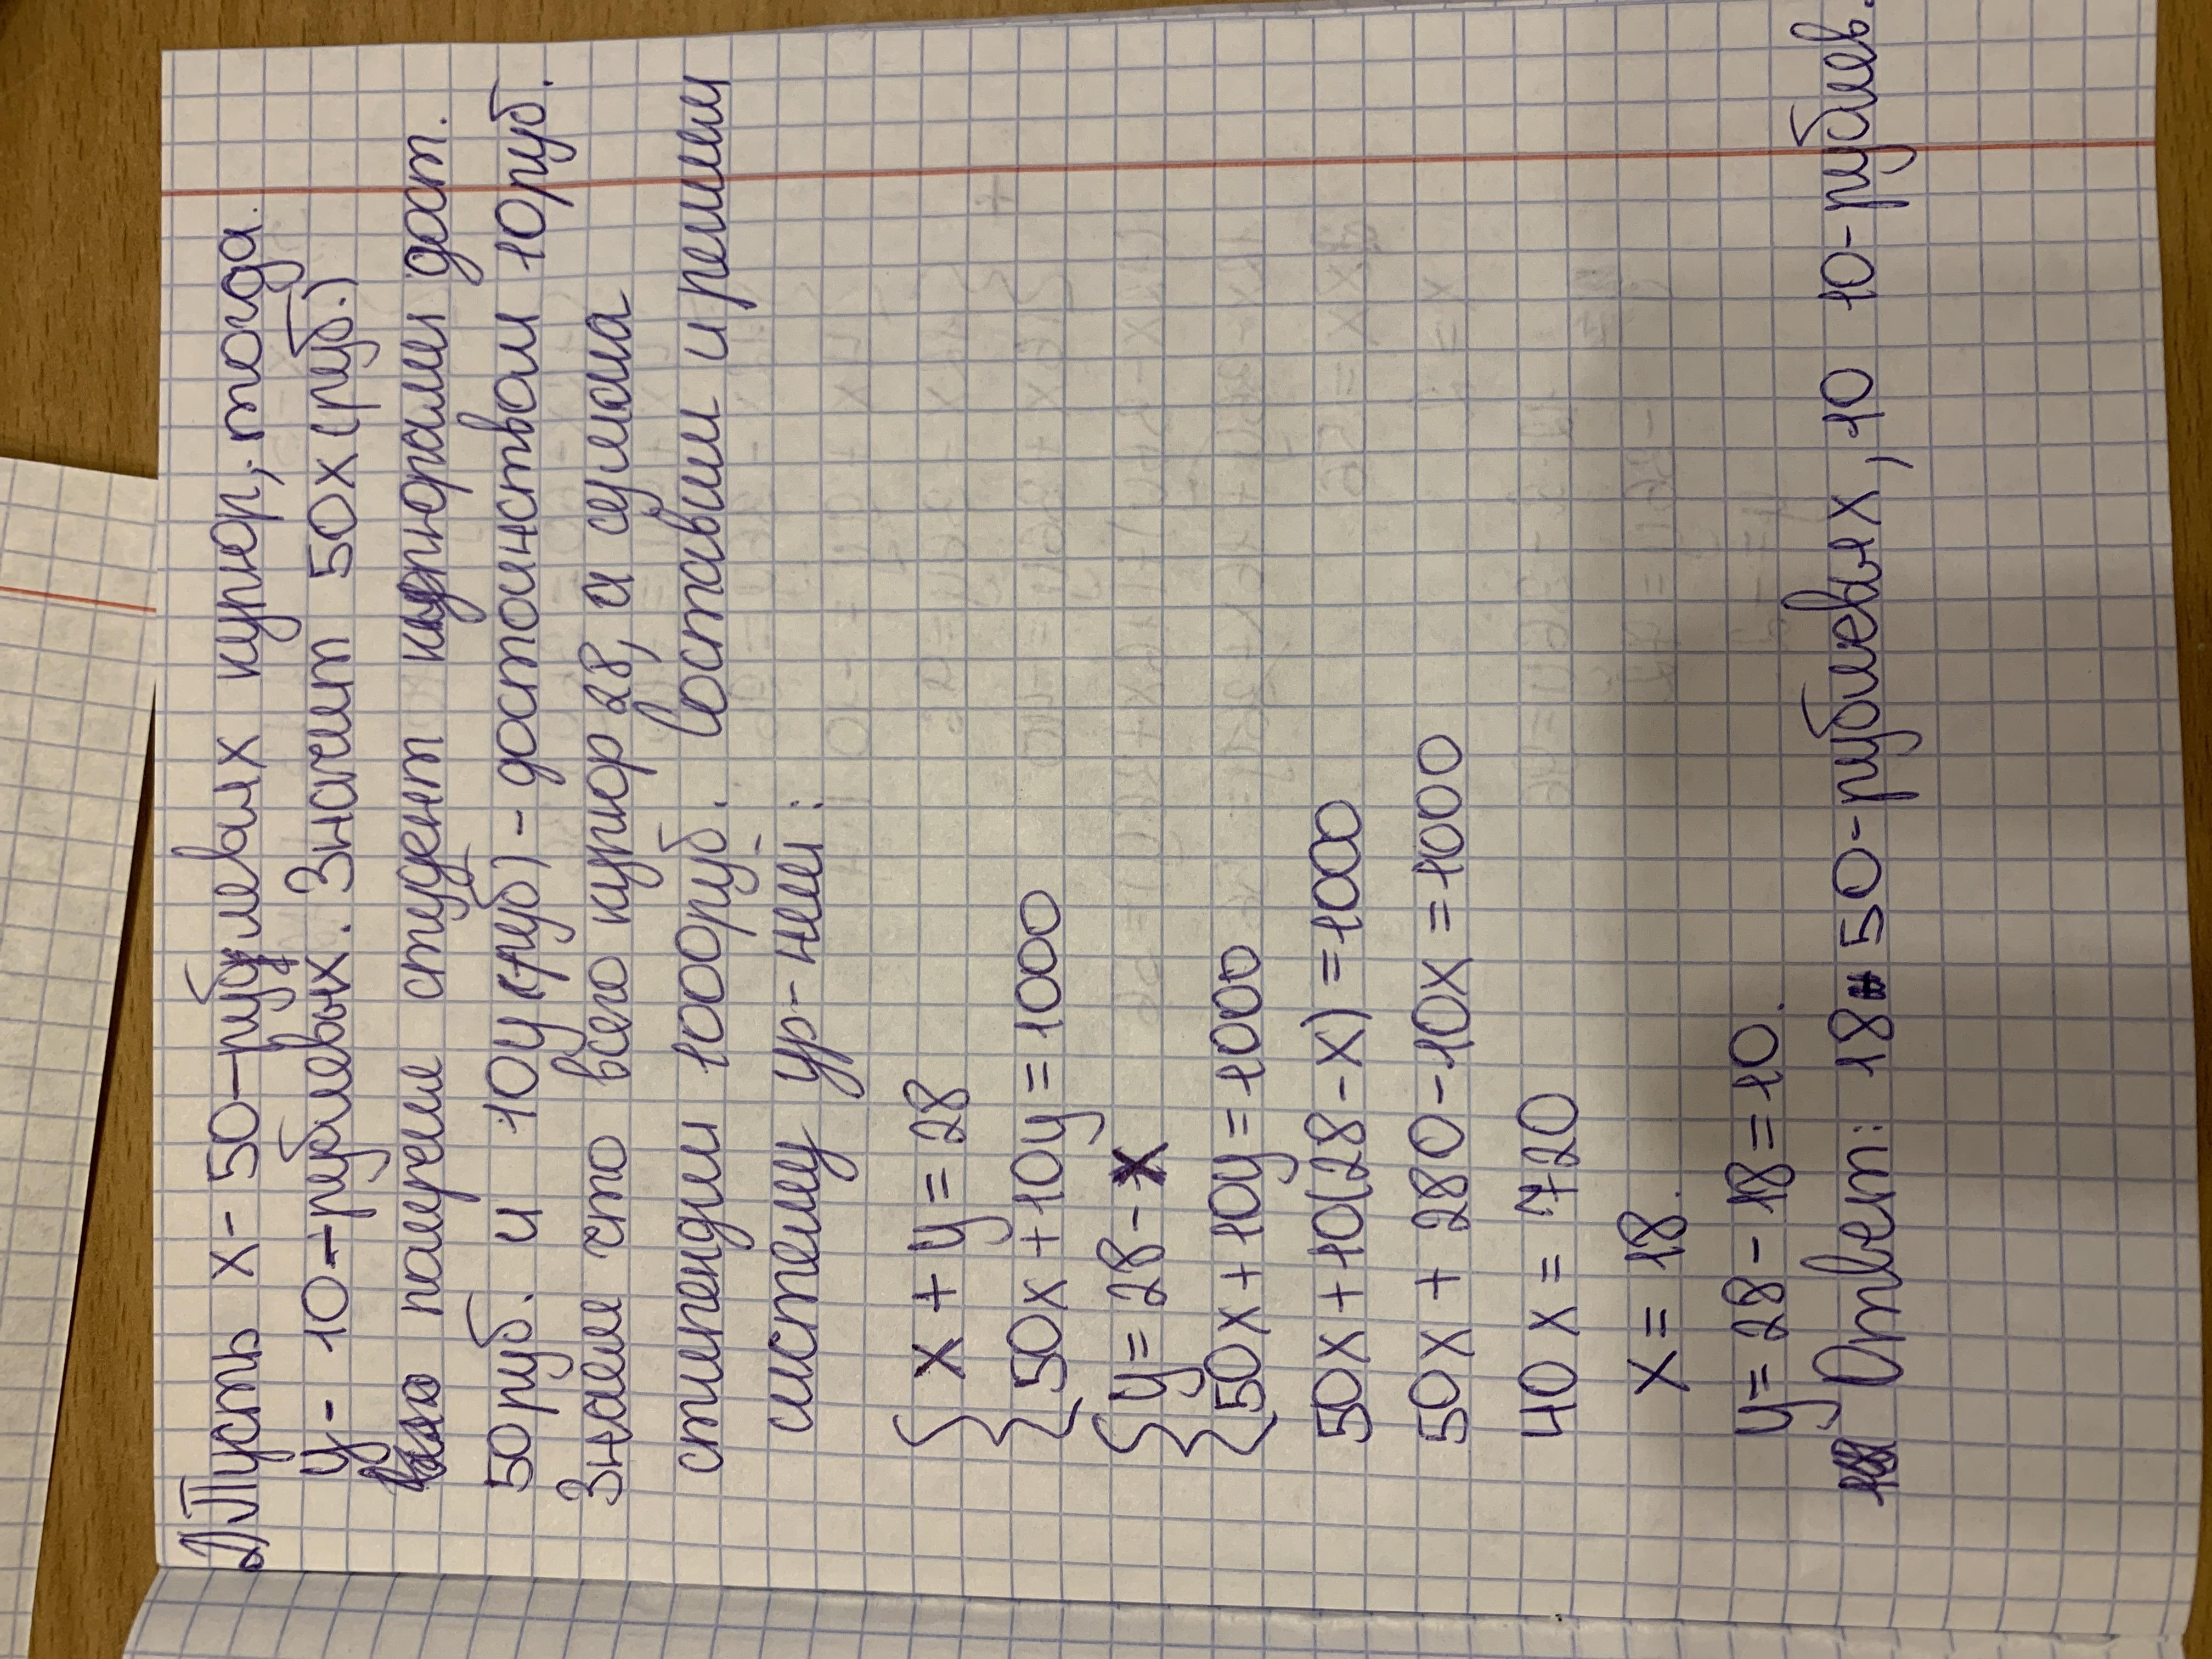 2) Пусть х - 50-рублевых купюр, тогда
у - 10-рублевых. Значит 50х (руб.)
получеме студент кадпюрами дост.
50 руб. и 10у (руб) - достоинством 10 руб.
Знаем что всего купюр 28, а сумма
стипендии 1000 руб. Составим и решим
систему ур-ний:
{ х + у = 28
50х + 10у = 1000
{ у = 28 - х
50х + 10у = 1000
50х + 10(28 - х) = 1000
50х + 280 - 10х = 1000
40х = 720
х = 18.
у = 28 - 18 = 10.
Ответ: 18 50-рублевых, 10 10-рублев.